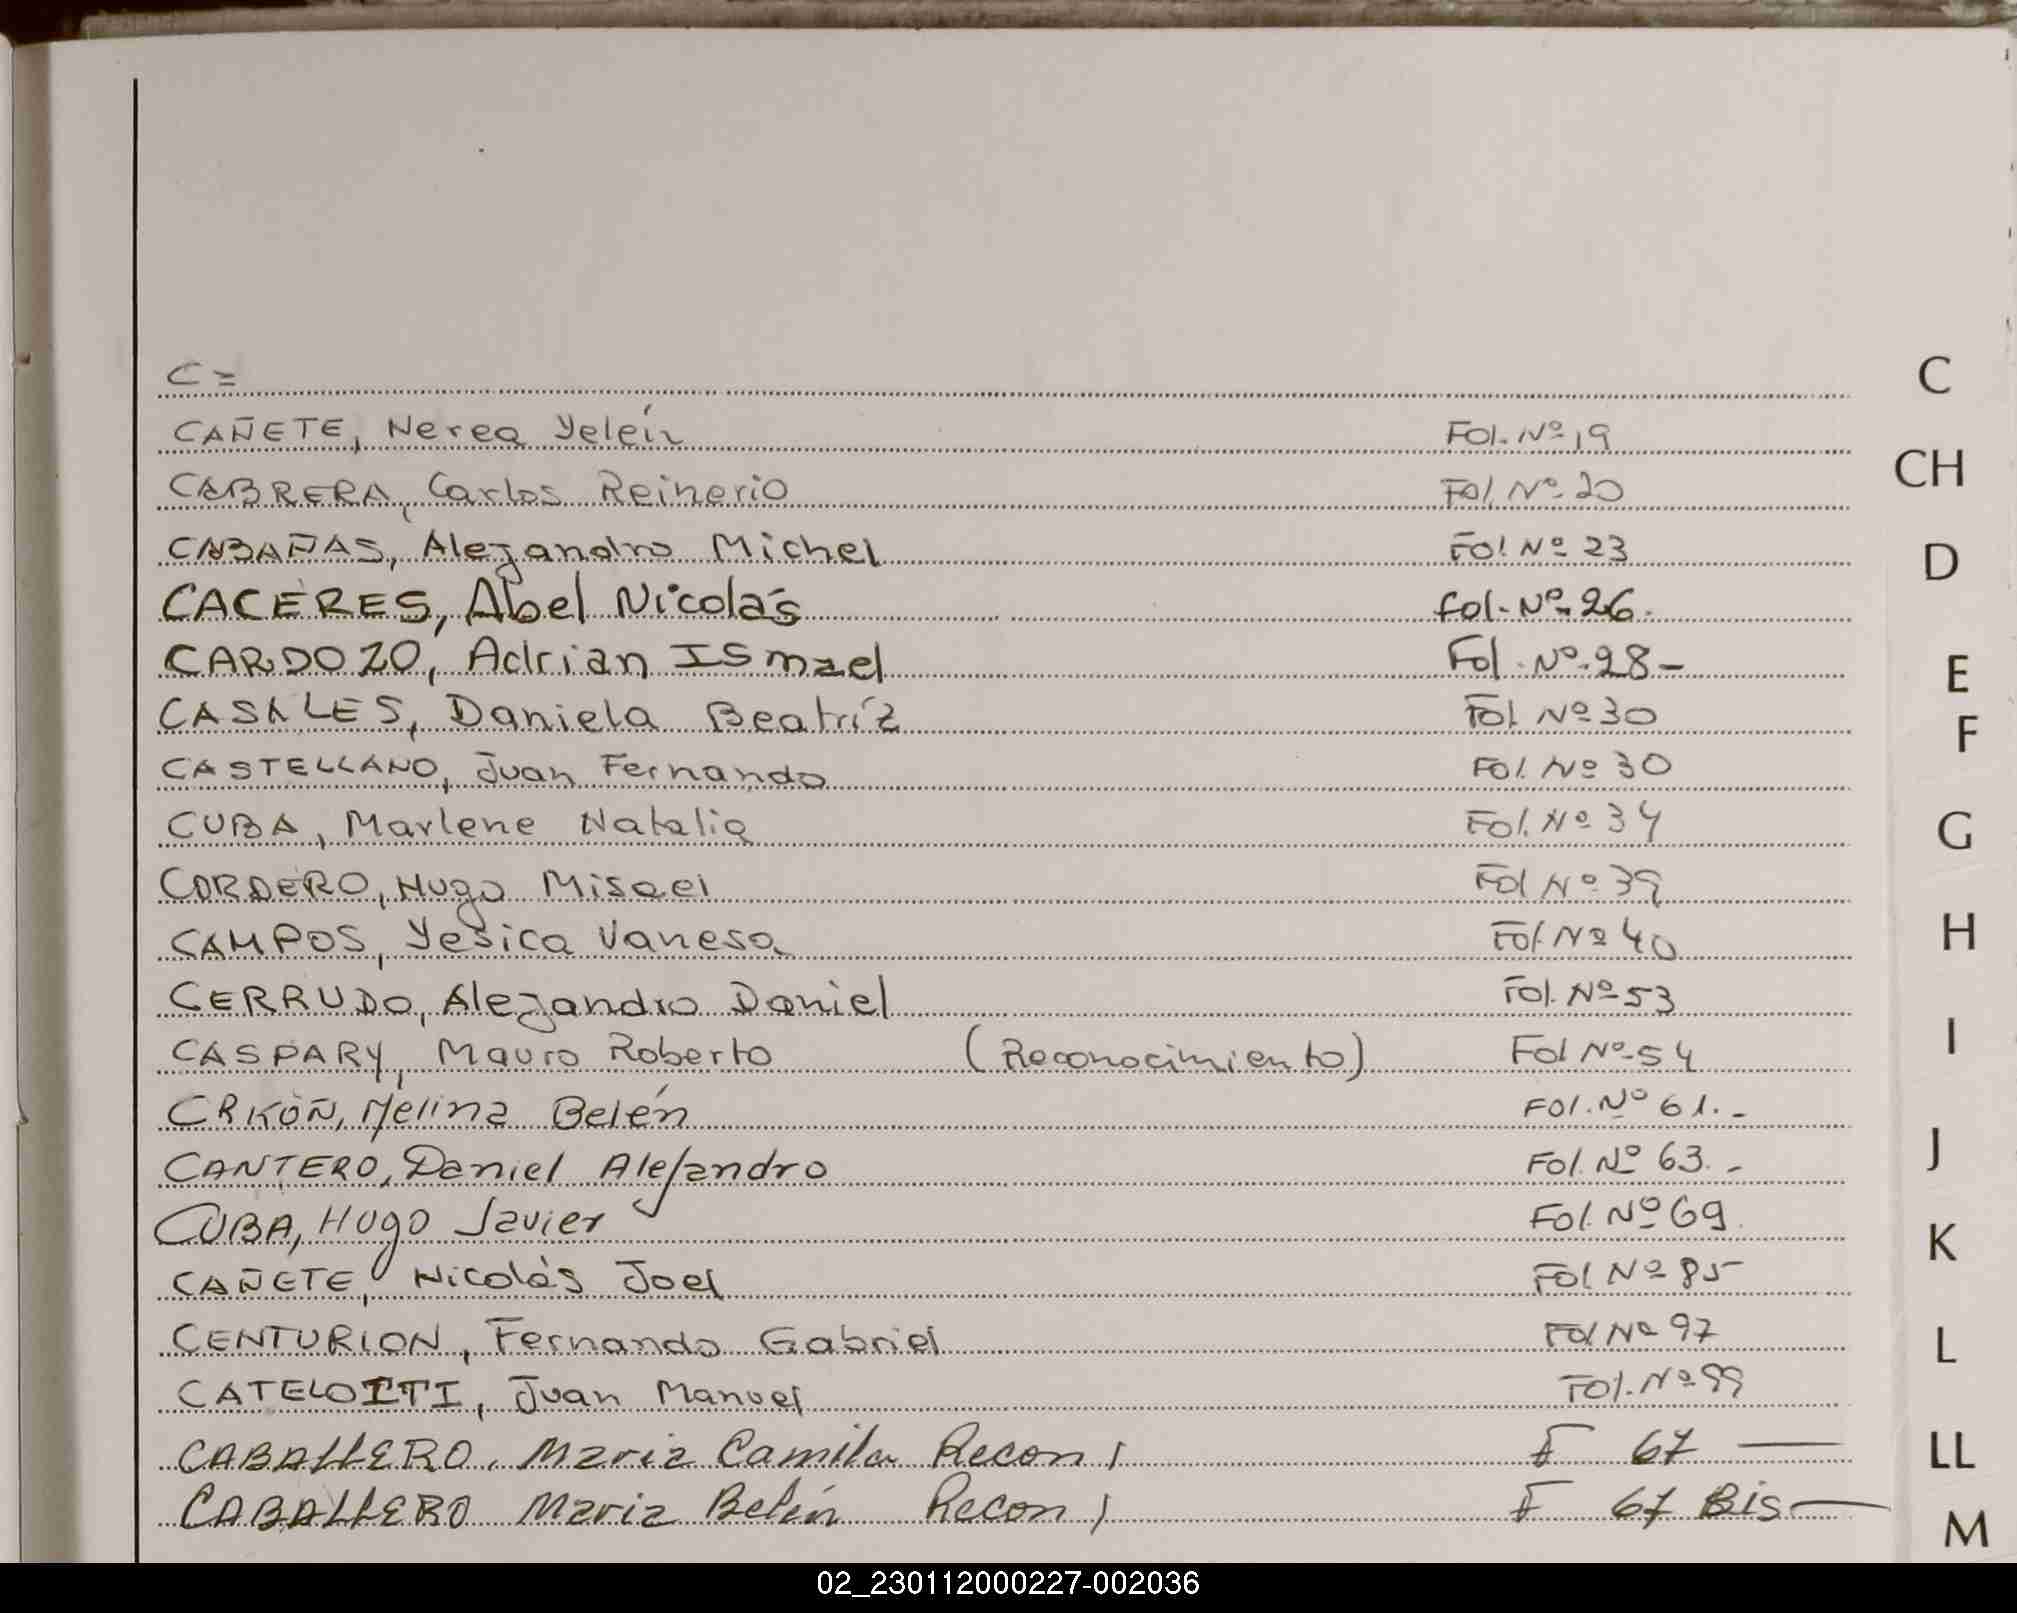 C=
CAÑETE, Nerea Yeleín Fol. Nº 19
CABRERA, Carlos Reinerio Fol. Nº 20
CABAÑAS, Alejandro Michel Fol Nº 23
CACERES, Abel Nicolás fol. Nº 26.
CARDOZO, Adrian ISmael Fol. Nº 28-
CASALES, Daniela Beatríz Fol. Nº 30
CASTELLANO, Juan Fernando Fol. Nº 30
CUBA, Marlene Natalia Fol. Nº 34
CORDERO, Hugo Misael Fol Nº 39
CAMPOS, Yesica Vanesa Fol. Nº 40
CERRUDO, Alejandro Daniel Fol. Nº 53
CASPARY, Mauro Roberto (Reconocimiento) Fol Nº 54
Melina Belén Fol. Nº 61.-
CANTERO, Daniel Alejandro Fol. Nº 63.-
CUBA, Hugo Javier Fol. Nº 69.
CAÑETE, Nicolás Joel Fol. Nº 85
CENTURION, Fernando Gabriel Fol Nº 97
Juan Manuel Fol. Nº 99
CABALLERO, Maria Camila Recon) F 67 —
CABALLERO Maria Belén Recon) F 67 Bis —
C
CH
D
E
F
G
H
I
J
K
L
LL
M
02_230112000227-002036